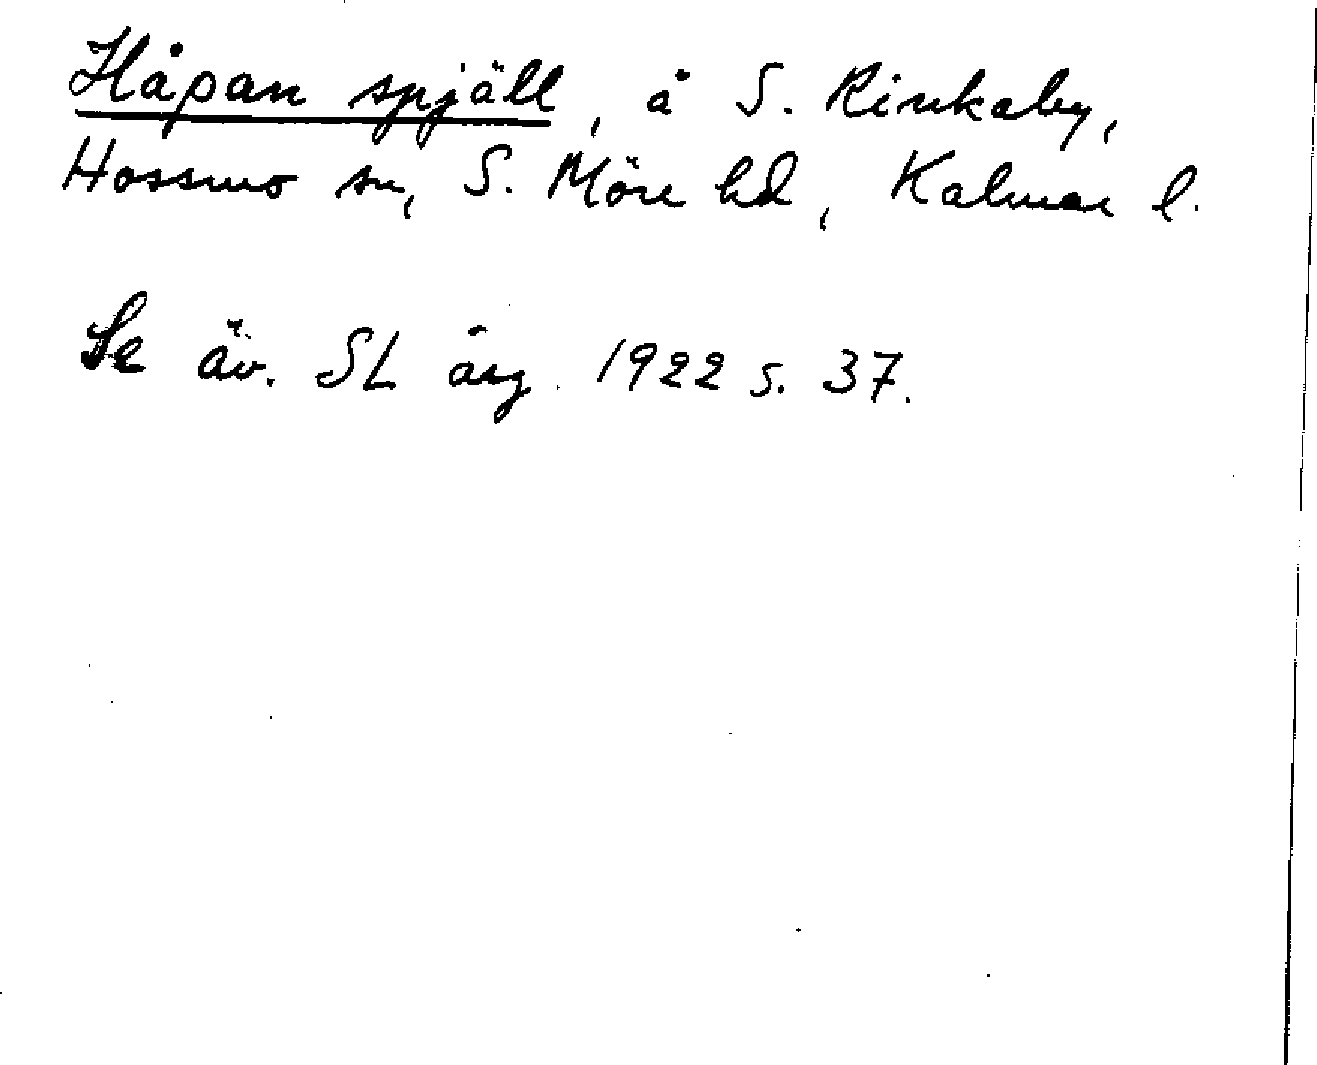 Håpan spjäll, å S. Rinkaby,
Hossmo sn, S. Möre hd, Kalmar l.
Se äv. SL årg. 1922 s. 37.